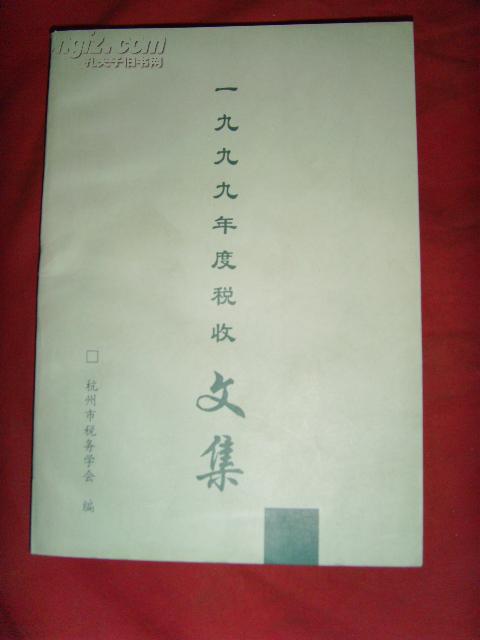 孔夫子旧书网
一九九九年度税收
文集
□ 杭州市税务学会 编